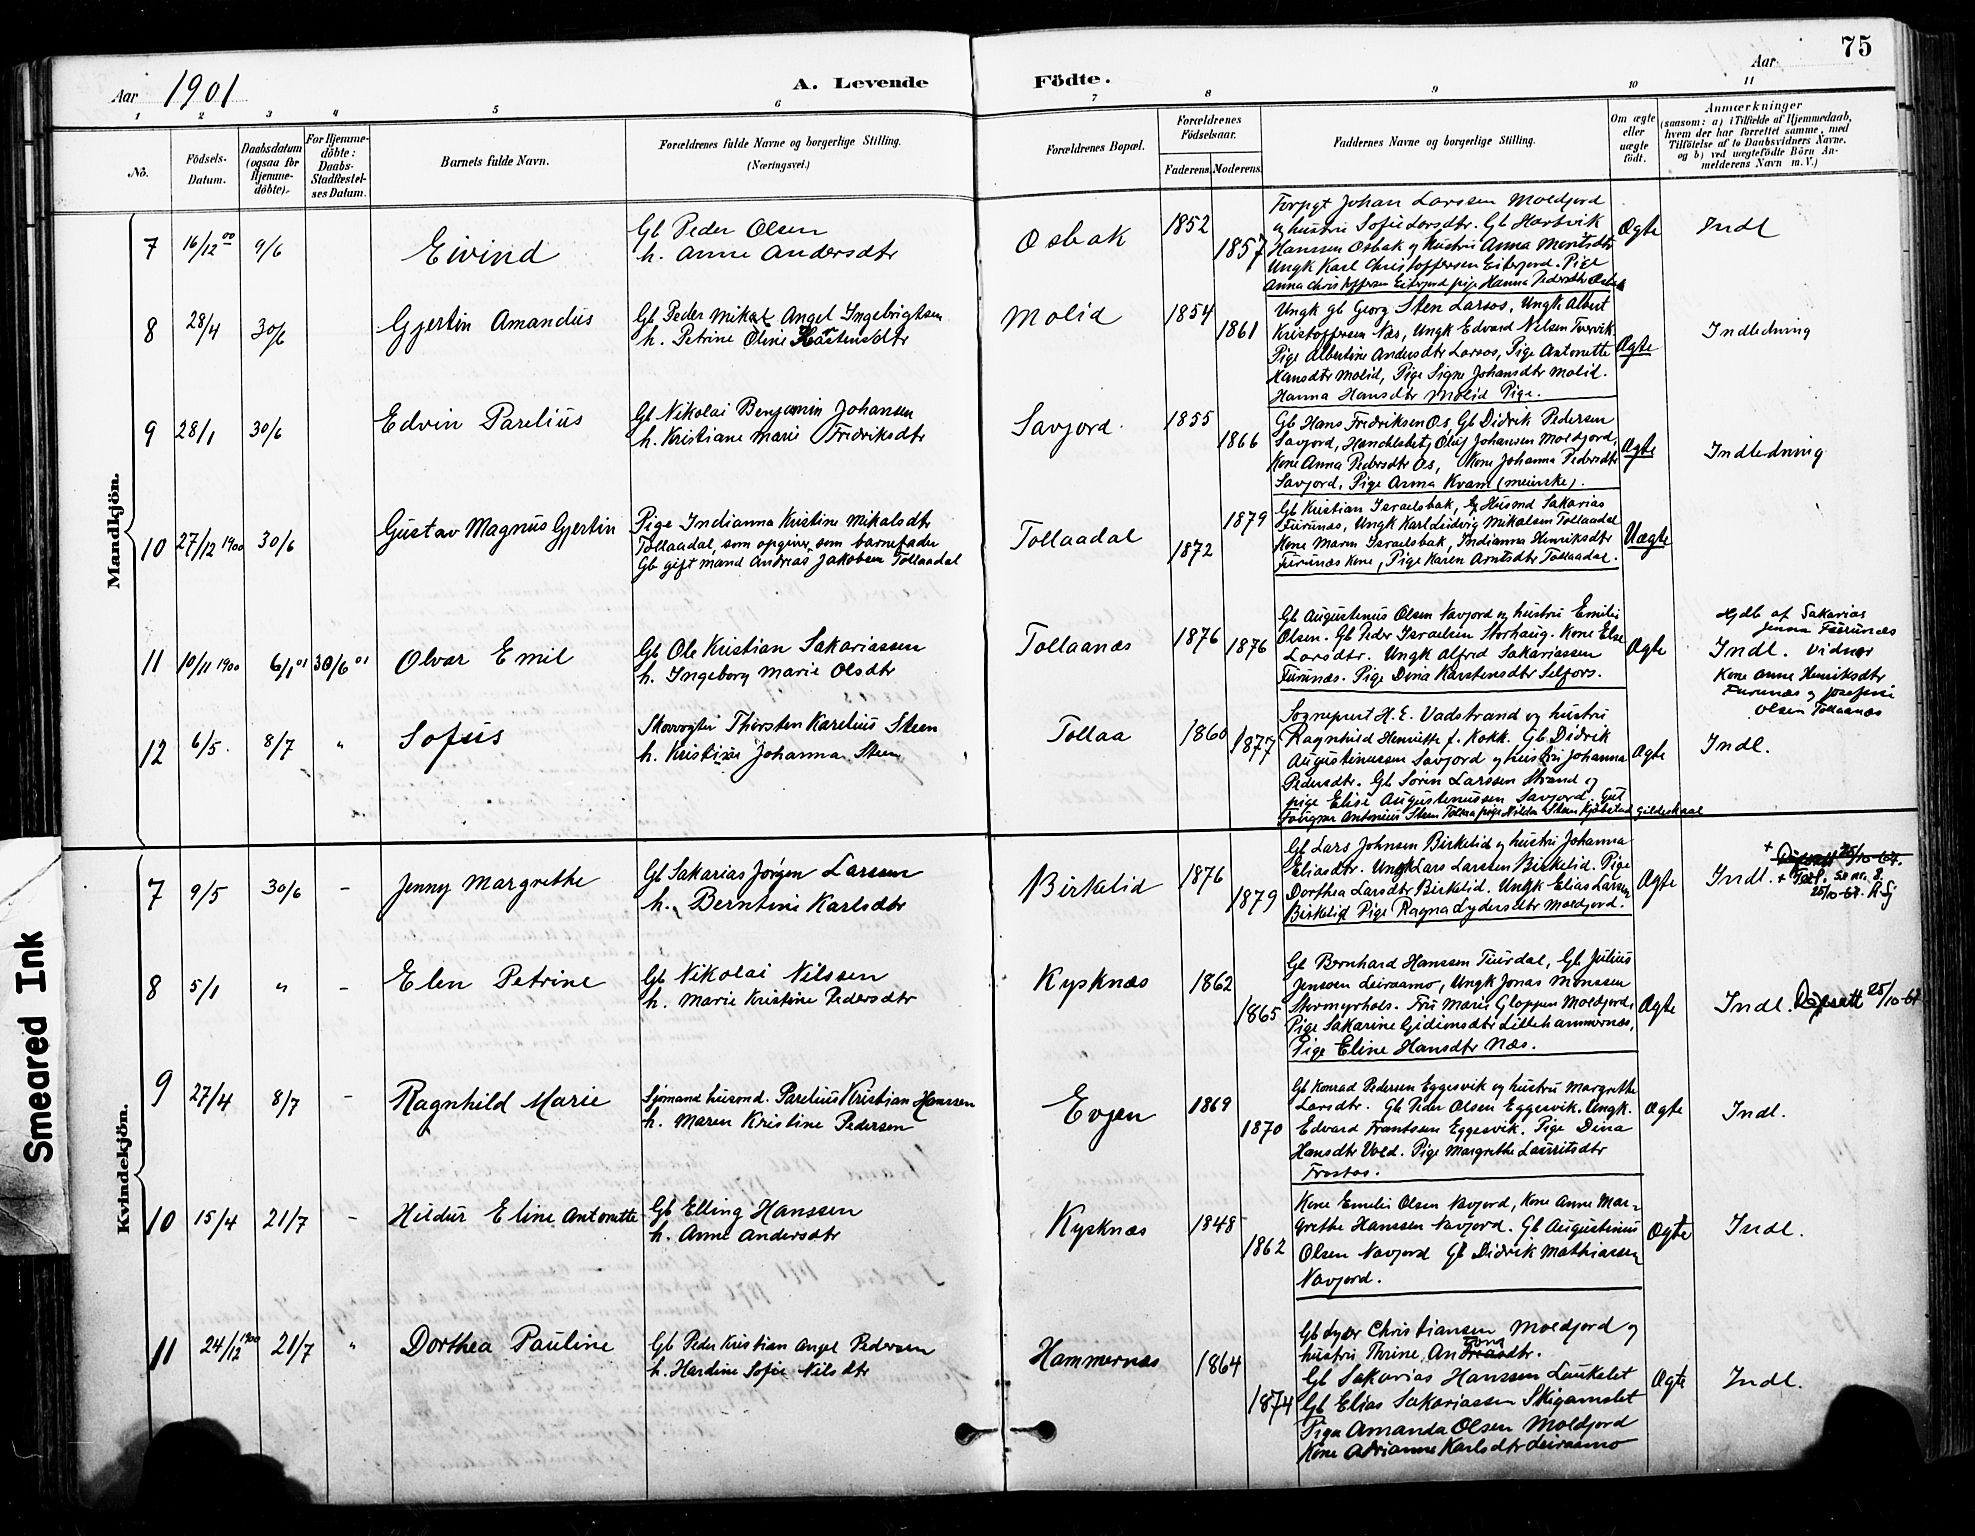 75
Aar 1901
A. Levende Födte.
Aar
1 2 3 4 5 6 7 8 9 10 11
No.
Födsels-Datum.
Daabsdatum (ogsaa for Hjemme-döbte).
For Hjemme-döbte: Daabs-Stadfæstel-ses Datum.
Barnets fulde Navn.
Forældrenes fulde Navne og borgerlige Stilling.
(Næringsvei.)
Forældrenes Bopæl.
Forældrenes Födselsaar.
Faderens. Moderens.
Faddernes Navne og borgerlige Stilling.
Om ægte eller uægte födt.
Anmærkninger
(saasom: a) i Tilfælde af Hjemmedaab,
hvem der har forrettet samme, med
Tilföielse af to Daabsvidners Navne,
og b) ved uægtefödte Börn An-
melderens Navn m. V.)
Mandkjön.
7 16/12 00 9/6 Eivind
Gb Peder Olsen
h. Anne Andersdtr
Osbak 1852 1857
Forpgt Johan Larssen Moldjord
og hustru Sofie Larsdtr. Gb Hartvik
Hanssen Osbak og hustru Anna Moritsdtr
Ungk Karl Christoffersen Eiterjord. Pige
Anna Christoffersen Eiterjord pige Hanna Pedersdtr Osbak
Ægte Indl
8 28/4 30/6 Gjertin Amandus
Gb Peder Mikal Angel Ingebrigtsen
h. Petrine Oline Hartensdtr
Molid 1854 1861
Ungk Gb Georg Sten Larsos, Ungk Albert
Kristoffersen Næs, Ungk Edvard Nilsen Torvik
Pige Albertine Andersdtr Larsos, Pige Antonette
Hansdtr Molid, Pige Signe Johansdtr Molid.
Hanna Hansdtr Molid Pige.
Ægte Indledning
9 28/1 30/6 Edvin Parelius
Gb Nikolai Benjamin Johansen
h. Kristiane Marie Fredriksdtr
Savjord. 1855 1866
Gb Hans Fredriksen Os, Gb Didrik Pedersen
Savjord, Handelsbetj Oluf Johansen Moldjord,
Kone Anna Pedersdtr Os, Kone Johanna Pedersdtr
Savjord, Pige Anna Kvam (meieriske).
Ægte Indledning
10 27/12 1900 30/6 Gustav Magnus Gjertin
Pige Indianna Kristine Mikalsdtr
Tollaadal, som opgiver som barnefader
Gb gift mand Andreas Jakobsen Tollaadal
Tollaadal 1879 1872
Gb Kristian Israelsbak, Gb Husmd Sakarias
Furunæs, Ungk Karl Ludvig Mikalsen Tollaadal
Kone Maren Israelsbak, Indianna Henriksdtr
Furunæs Kone, Pige Karen Arntsdtr Tollaadal.
Uægte
11 10/11 1900 6/1 01 30/6 01 Olvar Emil
Gb Ole Kristian Sakariassen
h. Ingeborg Marie Olsdtr
Tollaanæs 1876 1876
Gb Augustinus Olsen Navjord og hustru Emilie
Olsen. Gb Peder Israelsen Storhaug. Kone Else
Larsdtr. Ungk Alfred Sakariassen
Furunæs. Pige Dina Karstensdtr Selfors.
Ægte
Hjdb af Sakarias
Furunæs
Indl. Vidner
Kone Anne Henriksdtr
Furunæs og Josefine
Olsen Tollaanæs
12 6/5. 8/7 " Sofus
Skovvogter Thorsten Karelius Steen
h. Kristine Johanna Steen
Tollaa 1860 1877
Sogneprest H. E. Vadstrand og hustru
Ragnhild Henriette f. Kokk. Gb Didrik
Augustinussen Savjord og hustru Johanna
Pedersdtr. Gb Sørin Larssen Strand og
pige Elise Augustinussen Savjord. Gut
Antonius Steen Tollaa pige Hilda Steen Gildeskaal
Ægte Indl.
Kvindekjön.
7 9/5 30/6 – Jenny Margrethe
Gb Sakarias Jørgen Larssen
h. Berntine Karlsdtr
Birkelid 1876 1879
Gb Lars Johnsen Birkelid og hustru Johanna
Eliasdtr. Ungk Lars Larssen Birkelid. Pige
Dorthea Larsdtr Birkelid. Ungk Elias Larsen
Birkelid Pige Ragna Lydersdtr Moldjord.
Ægte Indl.
25/10-67.
8 5/1 " – Elen Petrine
Gb Nikolai Nilssen
h. Marie Kristine Pedersdtr
Kysknæs 1862 1865
Gb Bernhard Hanssen Tuvdal, Gb Julius
Jenssen Leiraamo, Ungk Jonas Monssen
Stormyrhols. Fru Marie Gloppen Moldjord,
Pige Sakarine Gidionsdtr Lillehammernæs,
Pige Eline Hansdtr Næs.
Ægte Indl. 25/10-67
9 27/4 8/7 – Ragnhild Marie
Sjømand husmd. Parelius Kristian Hanssen
h. Maren Kristine Pedersen
Evjen 1869 1870
Gb Konrad Pedersen Eggesvik og hustru Margrethe
Larsdtr. Gb Peder Olsen Eggesvik. Ungk.
Edvard Frantsen Eggesvik. Pige Dina
Hansdtr Vold. Pige Margrethe Lauritsdtr
Frostos.
Ægte Indl.
10 15/4 21/7 – Hildur Eline Antonette
Gb Elling Hanssen
h. Anne Andersdtr
Kysknæs 1848 1862
Kone Emilie Olsen Navjord, Kone Anne Mar-
grethe Hanssen Navjord. Gb Augustinius
Olsen Navjord Gb Didrik Mathiassen
Navjord.
Ægte Indl.
11 24/12 1900 21/7 " Dorthea Pauline
Gb Peder Kristian Angel Pedersen
h. Hardine Sofie Nilsdtr
Hammernæs 1864 1874
Gb Lyder Christiansen Moldjord og
hustru Thrine Andreasdtr.
Gb Sakarias Hanssen Laukslet
Gb Elias Sakariassen Skigamslet
Pige Amanda Olsen Moldjord
Kone Adrianne Karlsdtr Leiraamo
Ægte Indl.
Smeared Ink